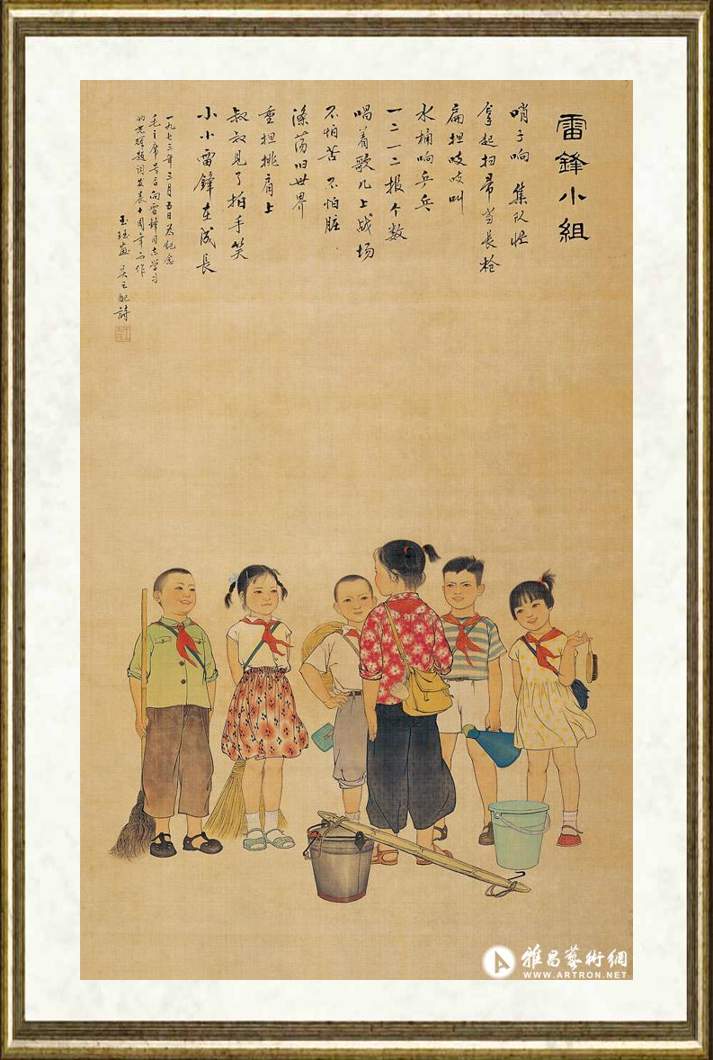 雷鋒小組
哨子响 集队忙
拿起扫帚当長枪
扁担吱吱叫
水桶响乒乓
一二一二报个数
唱着歌儿上战场
不怕苦 不怕脏
涤荡旧世界
重担挑肩上
叔叔见了拍手笑
小小雷鋒在成長
一九七三年三月五日为纪念
毛主席号召向雷锋同志学习
的光辉题词发表十周年而作
玉 画 配詩
雅昌藝術網
WWW.ARTRON.NET